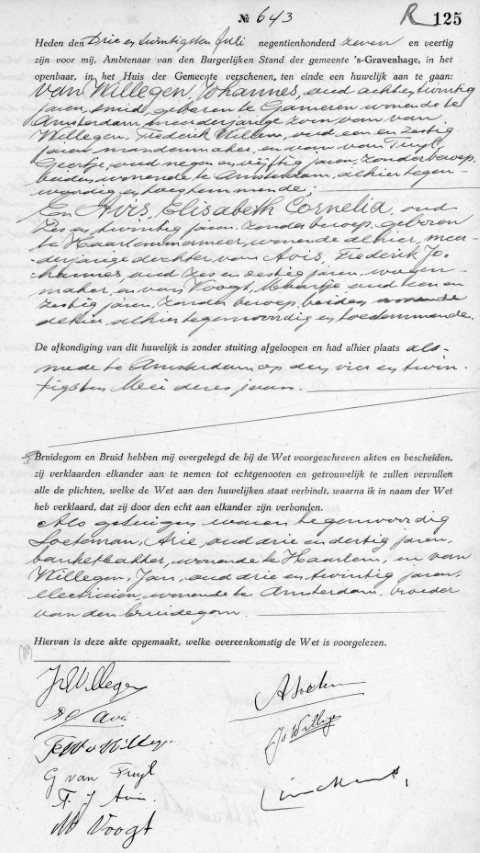 № 643 R 125
Heden den Drie en twintigsten Juli negentienhonderd zeven en veertig
zijn voor mij, Ambtenaar van den Burgerlijken Stand der gemeente 's-Gravenhage, in het
openbaar, in het Huis der Gemeente verschenen, ten einde een huwelijk aan te gaan:
van Willegen, Johannes, oud acht en twintig
jaren, smid, geboren te Gameren wonende te
Amsterdam, meerderjarige zoon van van
Willegen, Frederik Willem, oud een en zestig
jaren mandenmaker, en van van Tuijl,
Geertje, oud negen en vijftig jaren, zonder beroep,
beiden wonende te Amsterdam, alhier tegen-
woordig en toestemmende;
En Avis, Elisabeth Cornelia, oud
zes en twintig jaren. zonder beroep, geboren
te Haarlemmermeer, wonende alhier, meer-
derjarige dochter van Avis, Frederik Jo-
hannes, oud zes en zestig jaren, wagen-
maker, en van Voogt, Maartje, oud een en
zestig jaren, zonder beroep, beiden wonende
alhier, alhier tegenwoordig en toestemmende.
De afkondiging van dit huwelijk is zonder stuiting afgeloopen en had alhier plaats als-
mede te Amsterdam op den vier en twin-
tigsten Mei dezes jaars.
Bruidegom en Bruid hebben mij overgelegd de bij de Wet voorgeschreven akten en bescheiden,
zij verklaarden elkander aan te nemen tot echtgenooten en getrouwelijk te zullen vervullen
alle de plichten, welke de Wet aan den huwelijken staat verbindt, waarna ik in naam der Wet
heb verklaard, dat zij door den echt aan elkander zijn verbonden.
Als getuigen waren tegenwoordig
Soeteman, Arie, oud drie en dertig jaren,
banketbakker, wonende te Haarlem, en van
Willegen, Jan, oud drie en twintig jaren,
electricien, wonende te Amsterdam, broeder
van den bruidegom.
Hiervan is deze akte opgemaakt, welke overeenkomstig de Wet is voorgelezen.
J v Willegen
E C Avis
F W v Willegen
G van Tuijl
F. J Avis
M Voogt